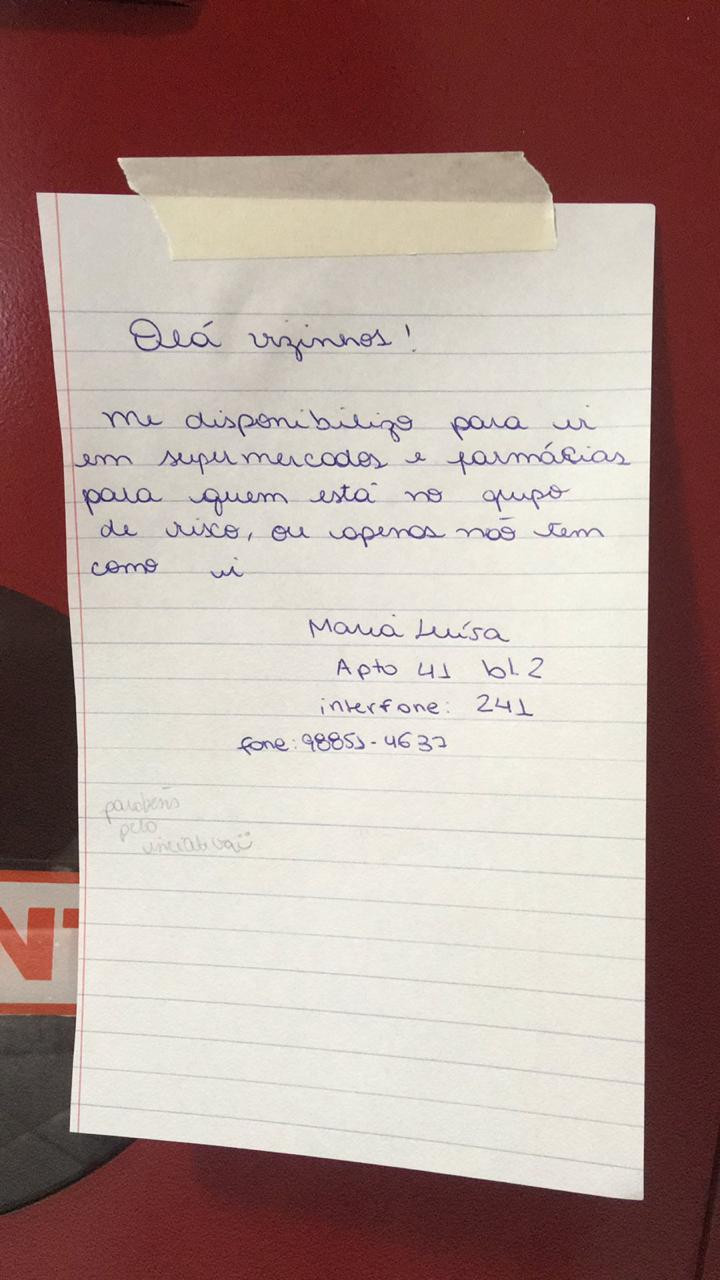 Olá vizinhos!
Me disponibilizo para ir
em supermercados e farmácias
para quem está no grupo
de risco, ou apenas não tem
como ir
Maria Luísa
Apto 41 bl.2
interfone: 241
fone: 98851-4637
parabéns
pela
iniciativa
NT